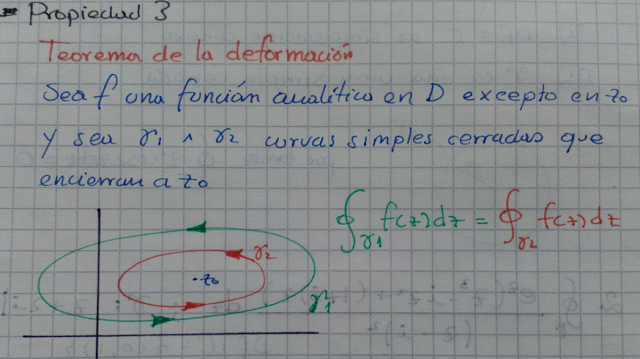 - Propiedad 3
Teorema de la deformación
Sea f una función analítica en D excepto en z₀
y sea γ₁ ∧ γ₂ curvas simples cerradas que
encierran a z₀
∮γ₁ f(z)dz = ∮γ₂ f(z)dz
γ₂
·z₀
γ₁